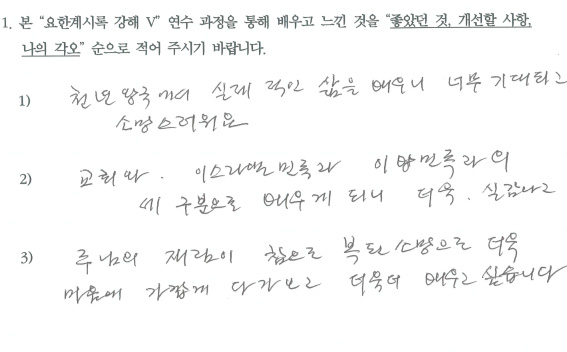 1. 본 “요한계시록 강해 V” 연수 과정을 통해 배우고 느낀 것을 “좋았던 것, 개선할 사항,
나의 각오” 순으로 적어 주시기 바랍니다.
1) 천년 왕국에서 실제 적인 삶을 배우니 너무 기대되고
소망스러워요
2) 교회와. 이스라엘민족과 이방민족과의
세 구분으로 배우게 되니 더욱. 실감나고
3) 주님의 재림이 참으로 복된소망으로 더욱
마음에 가깝게 다가오고 더욱더 배우고 싶습니다